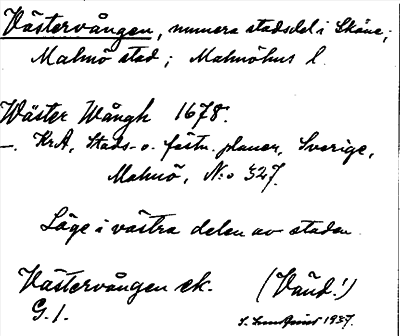 Västervången, numera stadsdel i Skåne,
Malmö stad; Malmöhus l.
Wäster Wångh 1678.
–. KrA, Stads- o. fästn. planer, Sverige,
Malmö, N:o 327.
Läge i västra delen av staden.
Västervången ek. (Vänd!)
G. 1. 1937.